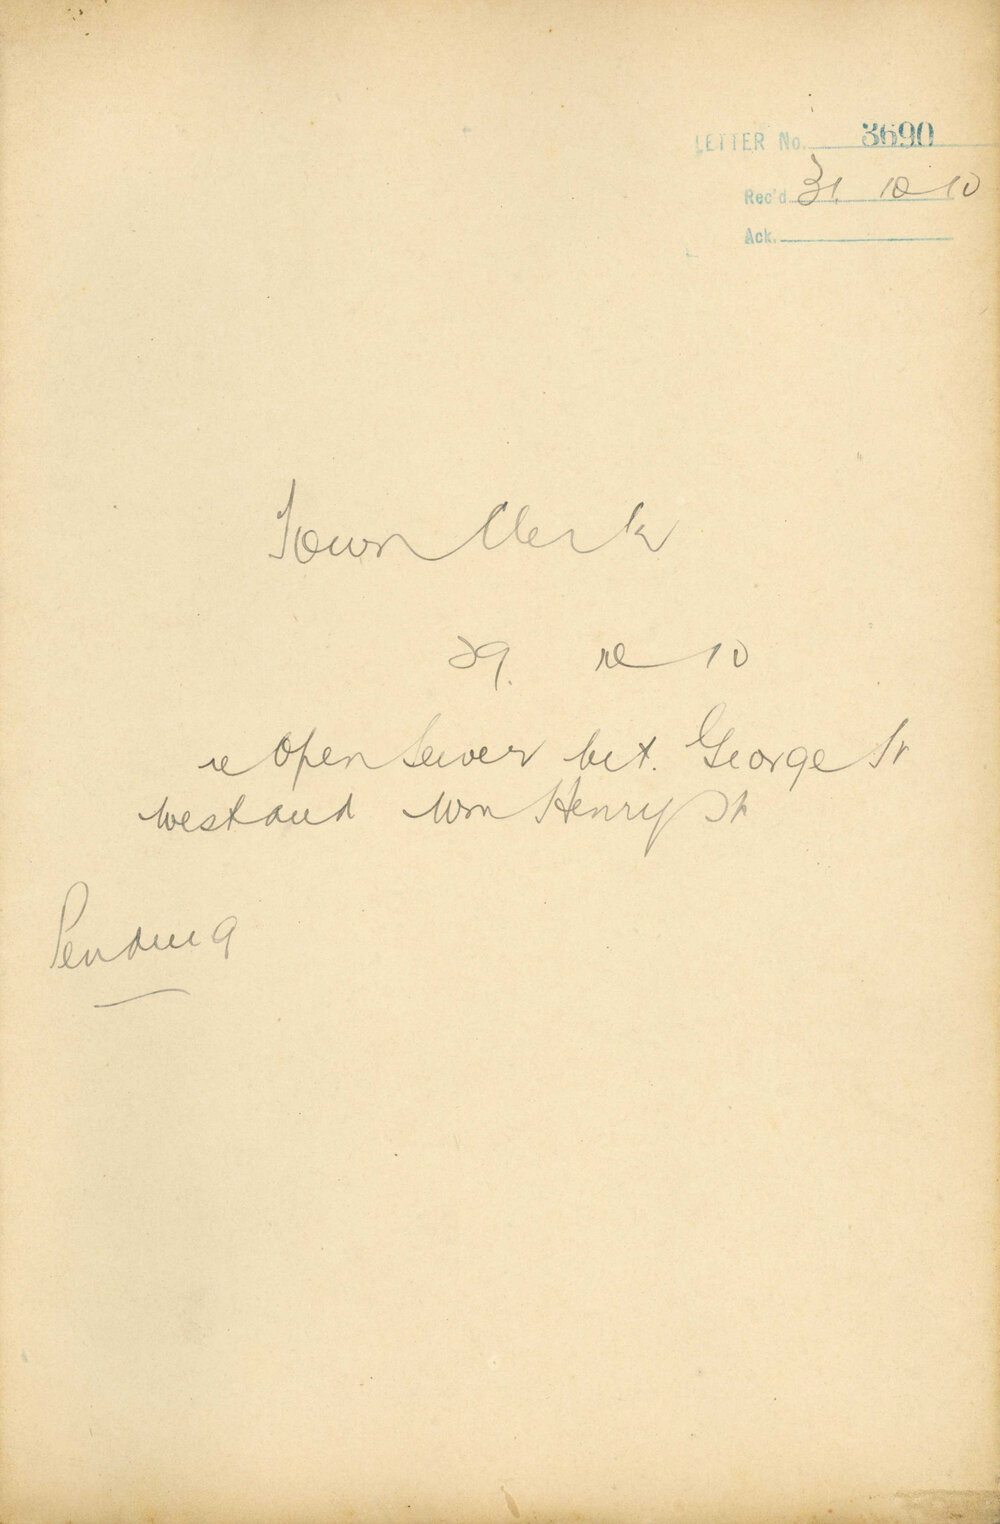 LETTER No. 3690
Rec'd 31. 10 10
Ack.
Town Clerk
29. 10 10
re Open Sewer bet. George St
West and Wm Henry St
Pending